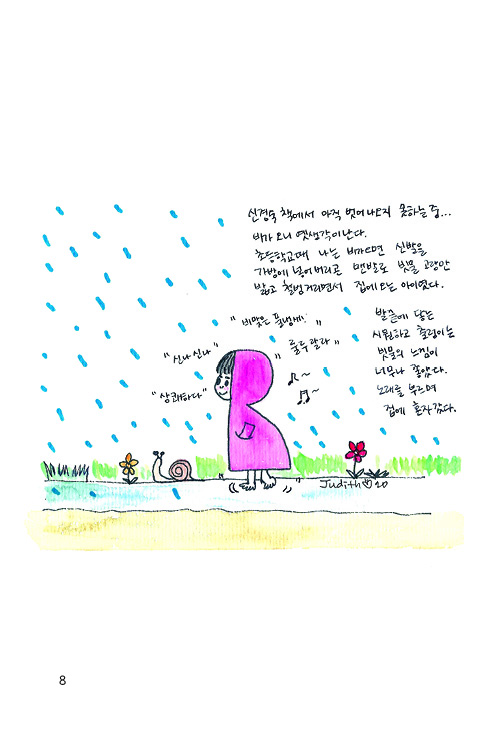 신경숙 책에서 아직 벗어나오지 못하는 중...
비가 오니 옛생각이 난다.
초등학교때 나는 비가오면 신발을
가방에 넣어버리곤 맨발로 빗물 고랑만
밟고 첨벙거리면서 집에오는 아이였다.
발끝에 닿는
시원하고 출렁이는
빗물의 느낌이
너무나 좋았다.
노래를 부르며
집에 혼자 갔다.
"비맞은 풀냄새!"
"룰루랄라"
"신나신나"
"상쾌하다"
Judith 20
8